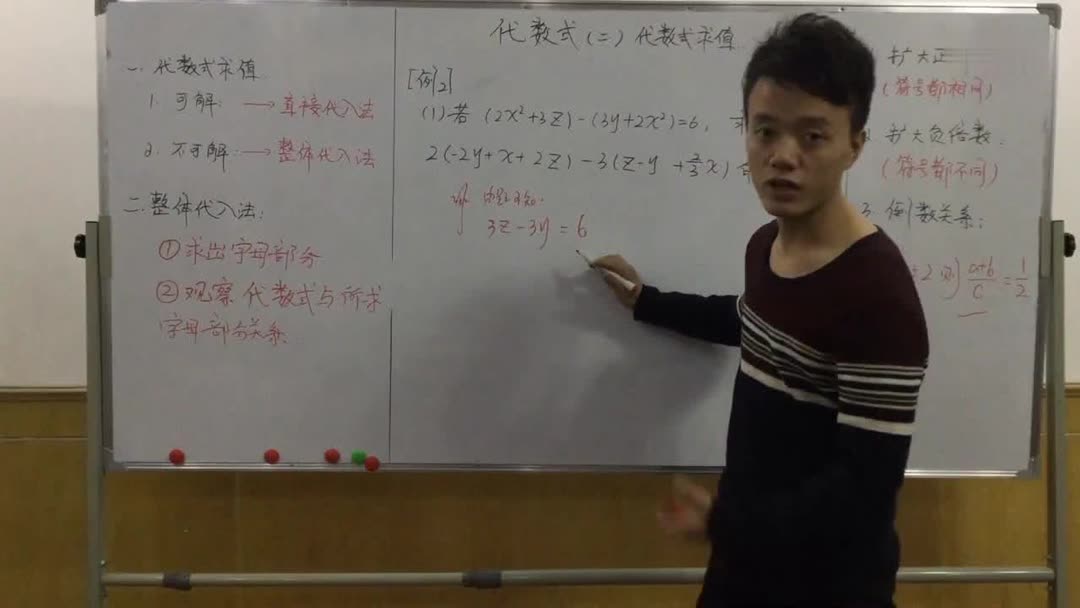 代数式(二)代数式求值
一. 代数式求值
1. 可解: → 直接代入法
2. 不可解: → 整体代入法
二. 整体代入法:
①求出字母部分
②观察代数式与所求
字母部分关系
[例2]
(1)若 (2x²+3z)-(3y+2x²)=6, 求
2(-2y+x+2z)-3(z-y+⅔x)
3z-3y=6
扩大正
(符号都相同)
扩大负倍数:
(符号都不同)
3. 倒数关系:
2 则 (a+b)/c = 1/2